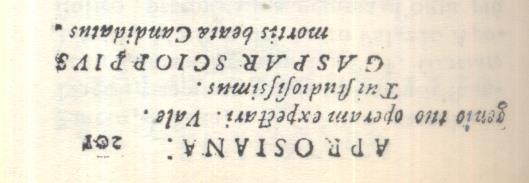 APROSIANA. 201
genio tuo operam expectari. Vale.
Tui ſtudioſiſſimus.
GASPAR SCIOPPIVS
mortis beatæ Candidatus.